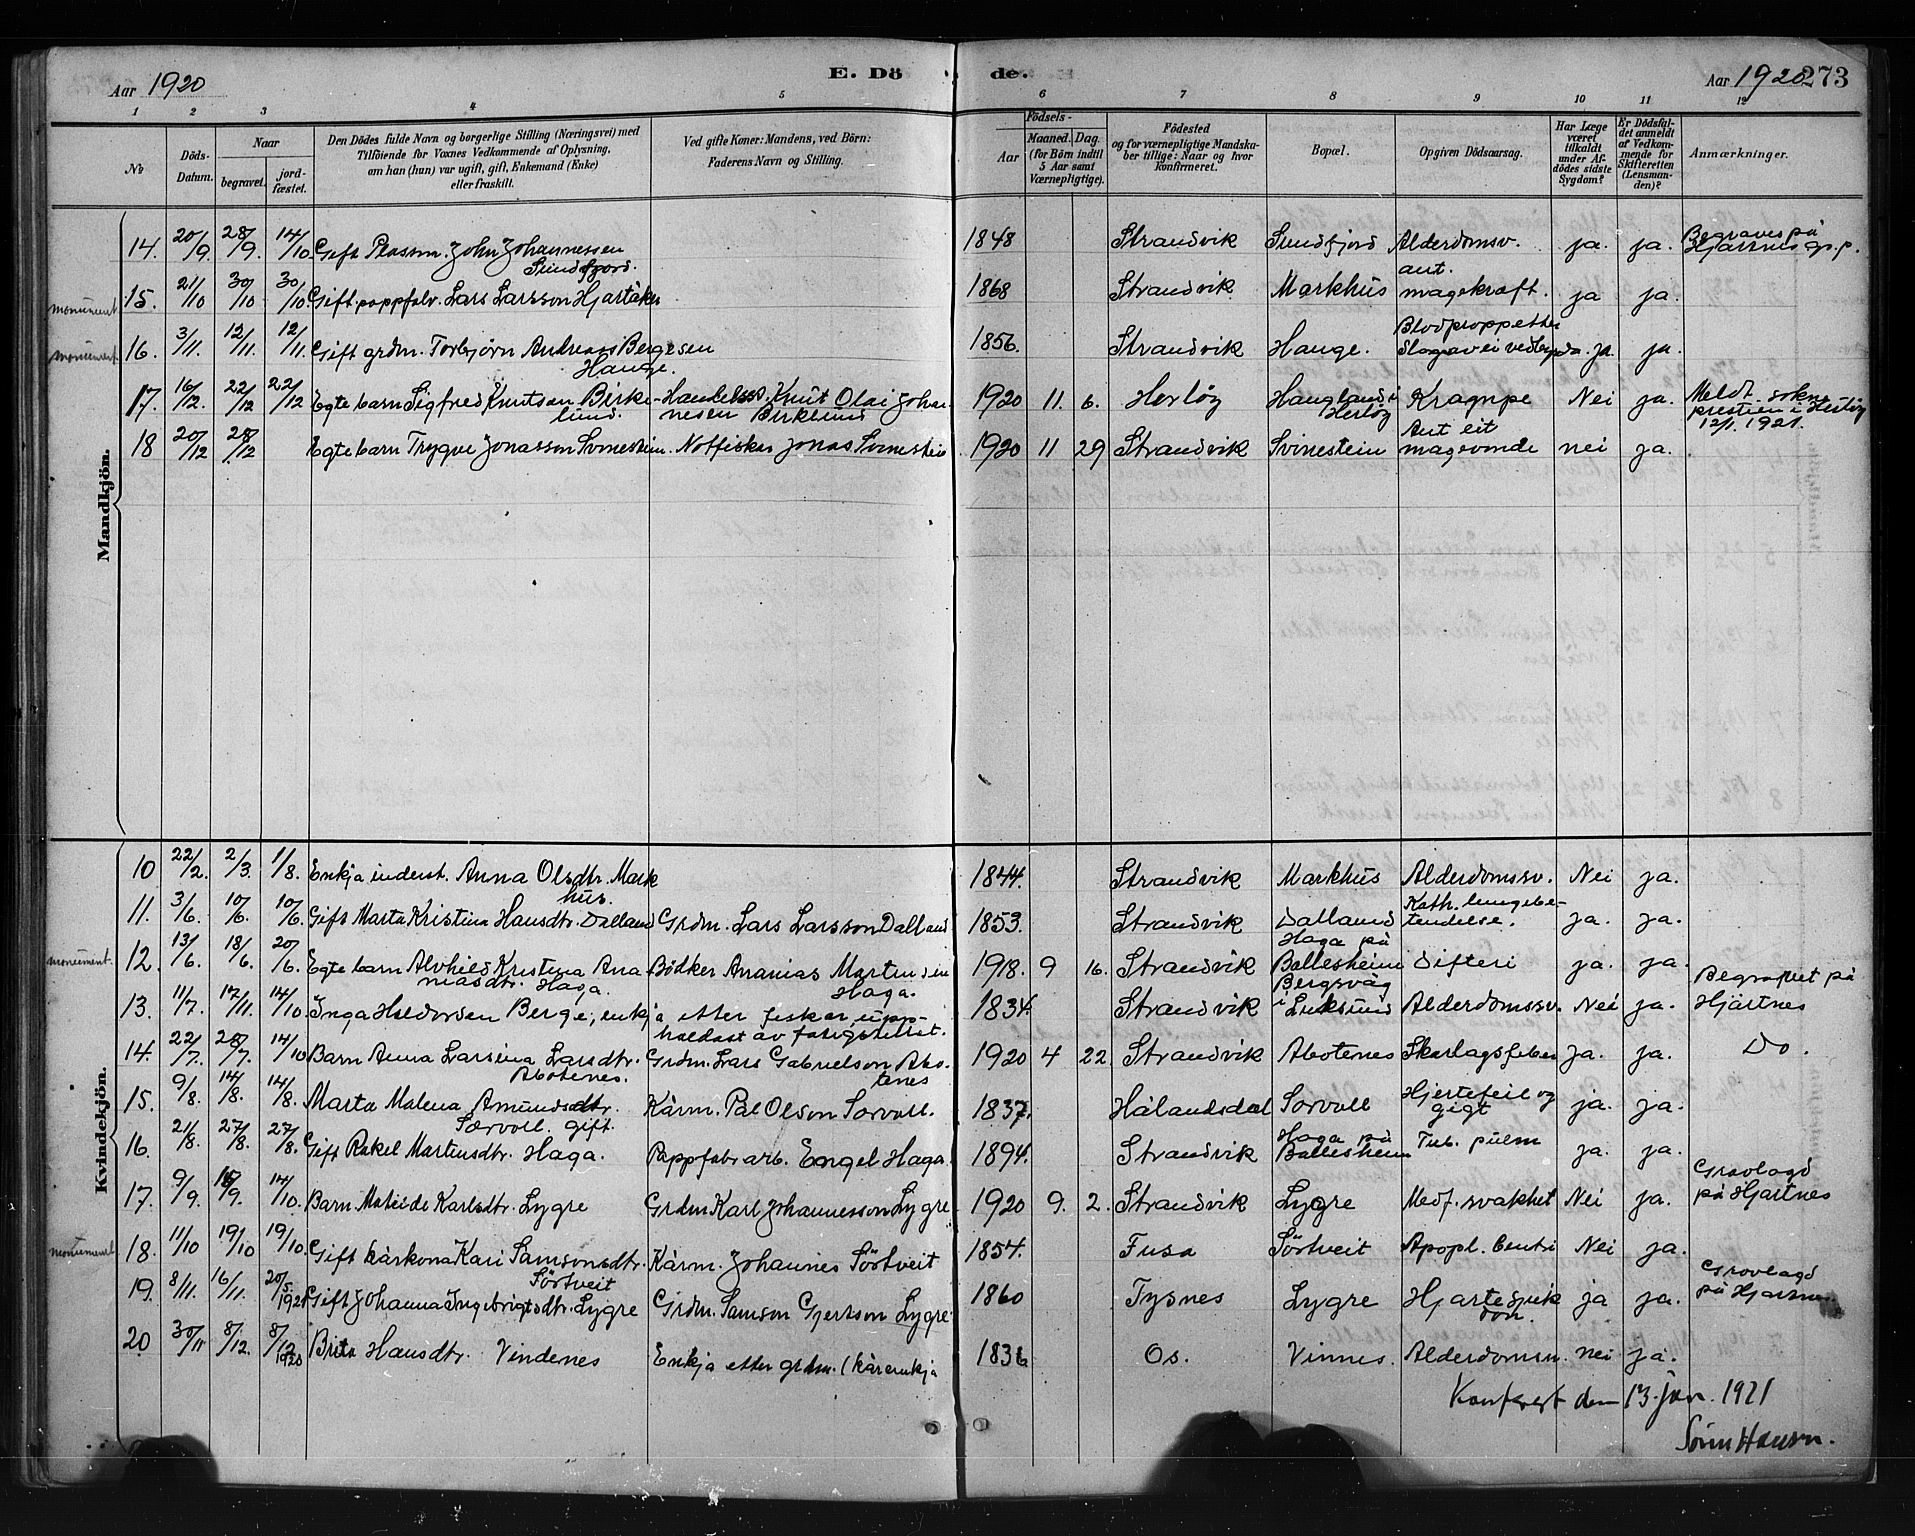 Aar 1920
E. Dö de.
Aar 1920 273
1 2 3 4 5 6 7 8 9 10 11 12
No
Döds-Datum.
Naar
begravet.
jord-fæstet.
Den Dödes fulde Navn og borgerlige Stilling (Næringsvei) med
Tilföiende for Voxnes Vedkommende af Oplysning,
om han (hun) var ugift, gift, Enkemand (Enke)
eller fraskilt.
Ved gifte Koner: Mandens, ved Börn:
Faderens Navn og Stilling.
Födsels-
Aar
Maaned. Dag.
(for Börn indtil
5 Aar samt
Værnepligtige).
Födested
og for værnepligtige Mandskaber tillige: Naar og hvor
konfirmeret.
Bopæl.
Opgiven Dödsaarsag.
Har Læge
været
tilkaldt
under Afdödes sidste
Sygdom?
Er Dödsfaldet anmeldt
af Vedkommende for
Skifteretten
(Lensmanden)?
Anmærkninger.
Mandkjön.
14. 20/9 28/9. 14/10 Gift Plassm. John Johannessen Sundfjord. 1848 Strandvik Sundfjord Alderdomsv. ja. ja. Begraves på Hjartnes gp.p.
monument 15. 21/10 30/10 30/10 Gift pappfabr. Lars Larsson Hjartåker 1868 Strandvik Markhus ant. magekræft. ja ja.
monument 16. 3/11. 12/11. 12/11. Gift grdm. Torbjørn Andreas Bergesen Hauge. 1856. Strandvik Hauge. Blodpropp etter ja. ja.
17. 16/12. 22/12 22/12 Egte barn Sigfred Knutson Birkelund. Knut Olai Johannesen Birkelund 1920 11. 6. Herløy Haugland i Herløy Krampe Nei ja. Meldt soknepresten i Herløy 12/1. 1921.
18 20/12 28/12 Egte barn Trygve Jonasson Svinestein. Notfisker Jonas Svinestein 1920 11 29 Strandvik Svinestein Ant eit magevonde nei ja.
Kvindekjön.
10 22/2. 2/3. 1/8. Enkja inderst. Anna Olsdtr. Markhus. 1844. Strandvik Markhus Alderdomssv. Nei ja.
11. 3/6. 10/6. 10/6. Gift Marta Kristina Hansdtr. Dalland Grdm. Lars Larsson Dalland 1853. Strandvik Dalland Kath. lungebetendelse. ja. ja.
monument. 12. 13/6. 18/6. 20/6. Egte barn Alvhild Kristina Ananiasdtr. Haga. Bödker Ananias Martinsen Haga. 1918. 9 16. Strandvik Haga på Ballesheim Difteri ja. ja.
13. 11/7. 17/11. 14/10. Inga Haldorsen Berge, enkja etter fisker, uppheldast av fatigstellet. 1834. Strandvik Bergsvåg i Luksund Alderdomssv. Nei ja. Begravet på Hjartnes
14. 22/7. 28/7. 14/10 Barn Anna Larsina Larsdtr. Abotenes. Grdm. Lars Gabrielson Abotenes 1920 4 22. Strandvik Abotenes Skarlagsfeber ja. ja. Do.
15. 9/8. 14/8. 14/8. Marta Malena Amundsdtr. Sørvoll. gift. Kårm. Pål Olson Sørvoll. 1837. Hålandsdal Sørvoll Hjertefeil og gigt ja. ja.
16. 21/8. 27/8. 27/8. Gift Rakel Martinsdtr. Haga. Pappfabr arb. Engel Haga. 1894. Strandvik Haga på Ballesheim Tub. pulm ja. ja.
17. 9/9. 16/9. 14/10. Barn Matilde Karlsdtr. Lygre Grdm Karl Johannesson Lygre 1920 9. 2. Strandvik Lygre Medf. svakhet Nei ja. Gravlagd på Hjartnes
monument 18. 11/10 19/10 19/10. Gift kårkona Kari Samsonsdtr. Sörtveit Kårm. Johannes Sörtveit 1854. Fusa Sörtveit Apopl. Nei ja.
19. 8/11. 16/11. 20/5. 1921 Gift Johanna Ingebrigtsdtr. Lygre Grdm. Samson Gjertson Lygre 1860 Tysnes Lygre Hjarteslik ja ja. Gravlagd på Hjartnes
20 30/11 8/12. 8/12 1920 Brita Hansdtr. Vindenes Enkja etter grdm. (kårenkja 1836 Os. Vinnes. Alderdomsv. nei ja.
Konferert den 13. jan. 1921
Sörin Hansen.